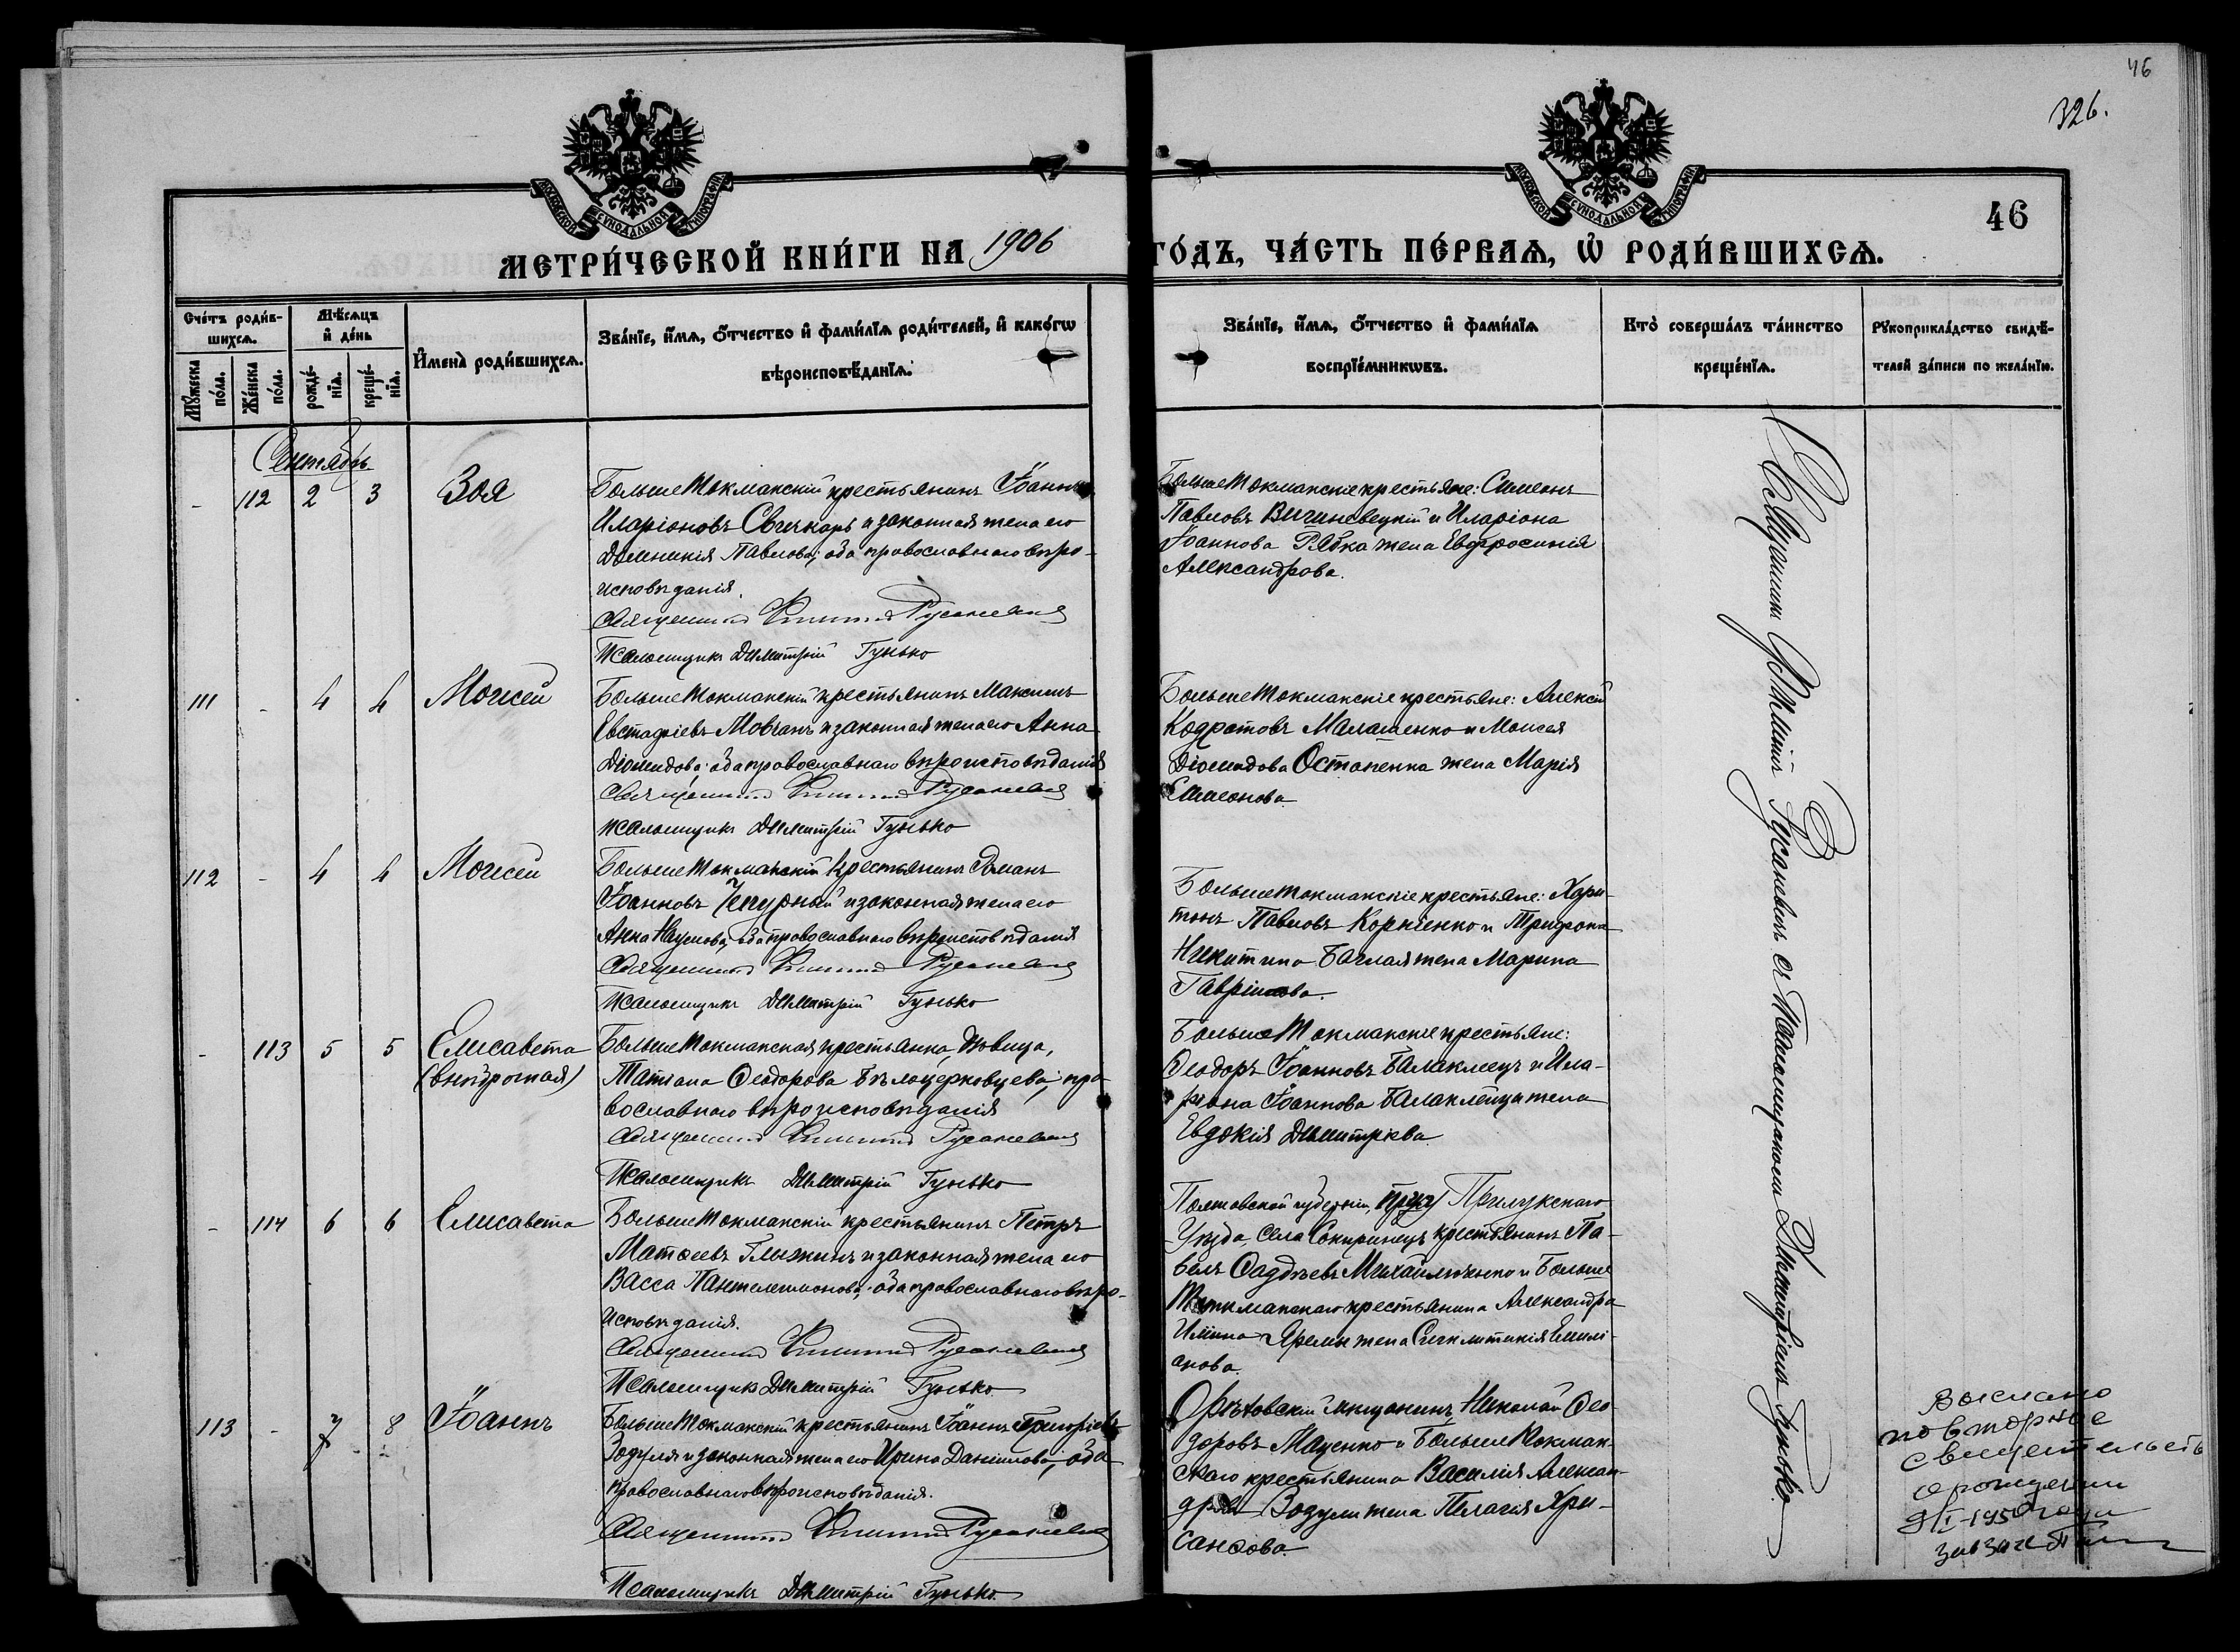 46
326.
46
МОСКОВСКОЙ СѴНОДАЛЬНОЙ ТИПОГРАФІИ
МОСКОВСКОЙ СѴНОДАЛЬНОЙ ТИПОГРАФІИ
МЕТРИ́ЧЕСКОЙ КНИ́ГИ НА 1906 ГО́ДЪ, ЧА́СТЬ ПЕ́РВАѦ, Ѽ РОДИ́ВШИХСѦ.
Сче́тъ роди́в-
шихсѧ.
Мѣ́сѧцъ
и҆ де́нь
Мꙋ́жеска по́ла.
Же́нска по́ла.
рожде́-
нїѧ.
креще́-
нїѧ.
И҆мена̀ роди́вшихсѧ.
Зва́нїе, и҆́мѧ, ѻ҆́тчество и҆ фами́лїѧ роди́телей, и҆ како́гѡ
вѣроисповѣ́данїѧ.
Зва́нїе, и҆́мѧ, ѻ҆́тчество и҆ фами́лїѧ
воспрїе́мникѡвъ.
Кто̀ соверша́лъ та́инство
креще́нїѧ.
Рꙋкоприкла́дство свидѣ́-
телей за́писи по жела́нїю.
Сентябрь
- 112 2 3 Зоя
БольшеТокмакскій крестьянинъ Іоаннъ
Иларіоновъ Свичкарь и законная жена его
Домникія Павлова; оба православнаго вѣро-
исповѣданія.
Священникъ Русаневичъ
Псаломщикъ Димитрій Гунько
БольшеТокмакскіе крестьяне: Симеонъ
Павловъ Вичиневецкій и Иларіона
Іоаннова Рябка жена Евфросинія
Александрова.
111 - 4 4 Моисей
БольшеТокмакскій крестьянинъ Максимъ
Евстафіевъ Мовчанъ и законная жена его Анна
Діомидова; оба православнаго вѣроисповѣданія
Священникъ Русаневичъ
Псаломщикъ Димитрій Гунько
БольшеТокмакскіе крестьяне: Алексій
Кодратовъ Малашенко и Моисея
Діомидова Остапенка жена Марія
Симеонова.
112 - 4 4 Моисей
БольшеТокмакскій крестьянинъ Романъ
Іоанновъ Чепурный и законная жена его
Анна Наумова; оба православнаго вѣроисповѣданія
Священникъ Русаневичъ
Псаломщикъ Димитрій Гунько
БольшеТокмакскіе крестьяне: Хари-
тонъ Павловъ Корніенко и Трифона
Никитина Баглая жена Марина
Гавріилова.
- 113 5 5 Елисавета
(внѣбрачная)
БольшеТокмакская крестьянка, дѣвица,
Татіана Ѳеодорова Бѣлоцерковцева; пра-
вославнаго вѣроисповѣданія
Священникъ Русаневичъ
Псаломщикъ Димитрій Гунько
БольшеТокмакскіе крестьяне:
Ѳеодоръ Іоанновъ Балаклеецъ и Ила-
ріона Іоаннова Балаклейца жена
Евдокія Димитріева.
- 114 6 6 Елисавета
БольшеТокмакскій крестьянинъ Петръ
Матѳеевъ Глыжинъ и законная жена его
Васса Пантелеимонова; оба православнаго вѣро-
исповѣданія.
Священникъ Русаневичъ
Псаломщикъ Димитрій Гунько.
Полтавской губерніи, Прилукскаго
Уѣзда, села Сокиринецъ крестьянинъ Па-
велъ Ѳаддѣевъ Михайличенко и Больше
Токмакскаго крестьянина Александра
Ильина Яремы жена Сигклитикія Емилі-
анова.
113 - 7 8 Іоаннъ
БольшеТокмакскій крестьянинъ Іоаннъ Григоріевъ
Зозуля и законная жена его Ирина Даніилова; оба
православнаго вѣроисповѣданія.
Священникъ Русаневичъ
Псаломщикъ Димитрій Гунько.
Орѣховскій мѣщанинъ Николай Ѳео-
доровъ Маценко и БольшеТокмак-
скаго крестьянина Василія Алексан-
дрова Зозули жена Пелагія Хри-
санѳова.
Священникъ Русаневичъ съ Псаломщикомъ Димитріемъ Гунько.
Выслано
повторное
свидетельств
о рождении
9/I-1950 года